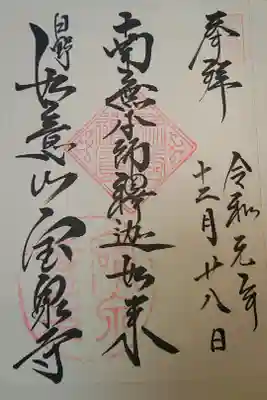 奉拝
令和元年
十二月廿八日
南無本師釋迦如来
日野
如意山宝泉寺